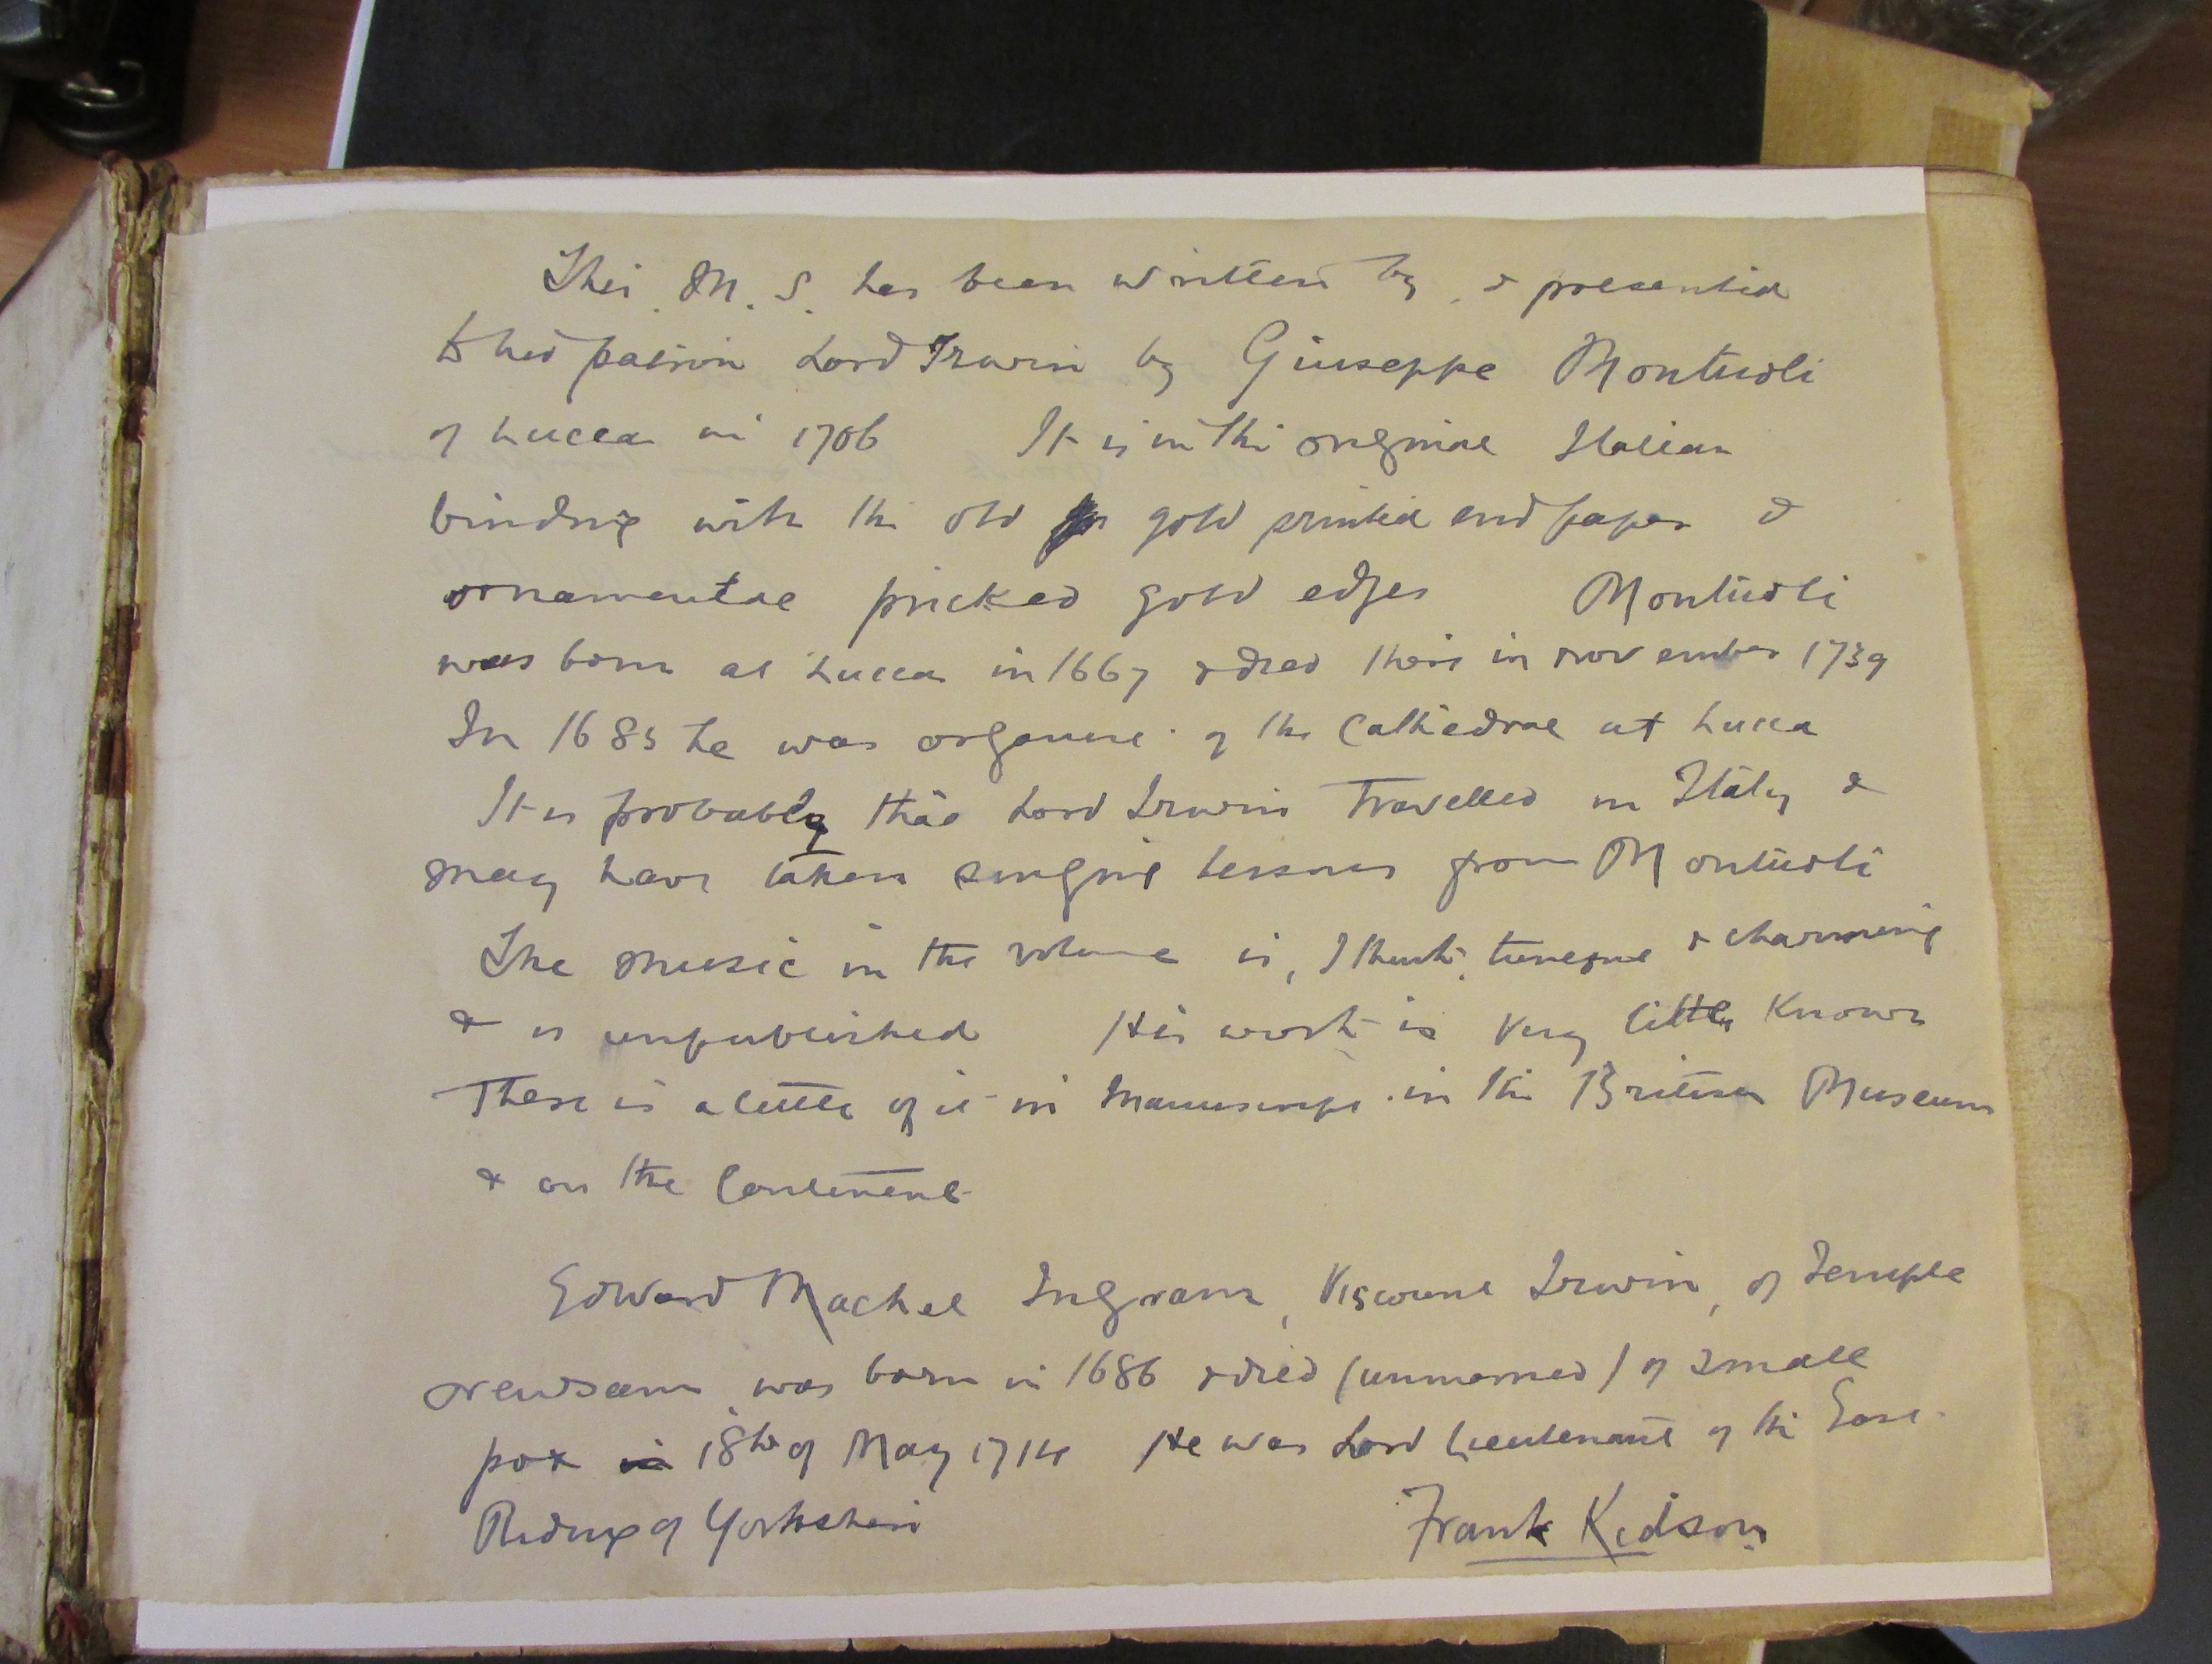 This M.S. has been written by, & presented
to his patron Lord Irwin by Giuseppe Montuoli
of Lucca in 1706 It is in the original Italian
binding with the old gold printed end paper &
ornamental pricked gold edges Montuoli
was born at Lucca in 1667 & died there in November 1739
In 1685 he was organist of the Cathedral at Lucca
It is probably that Lord Irwin travelled in Italy &
may have taken singing lessons from Montuoli
The music in the volume is, I think, tuneful & charming
& is unpublished His work is very little known
There is a little of it in manuscript in the British Museum
& on the Continent
Edward Machel Ingram, Viscount Irwin, of Temple
Newsam was born in 1686 & died (unmarried) of small
pox in 18th of May 1714 He was Lord Lieutenant of the East
Riding of Yorkshire
Frank Kidson